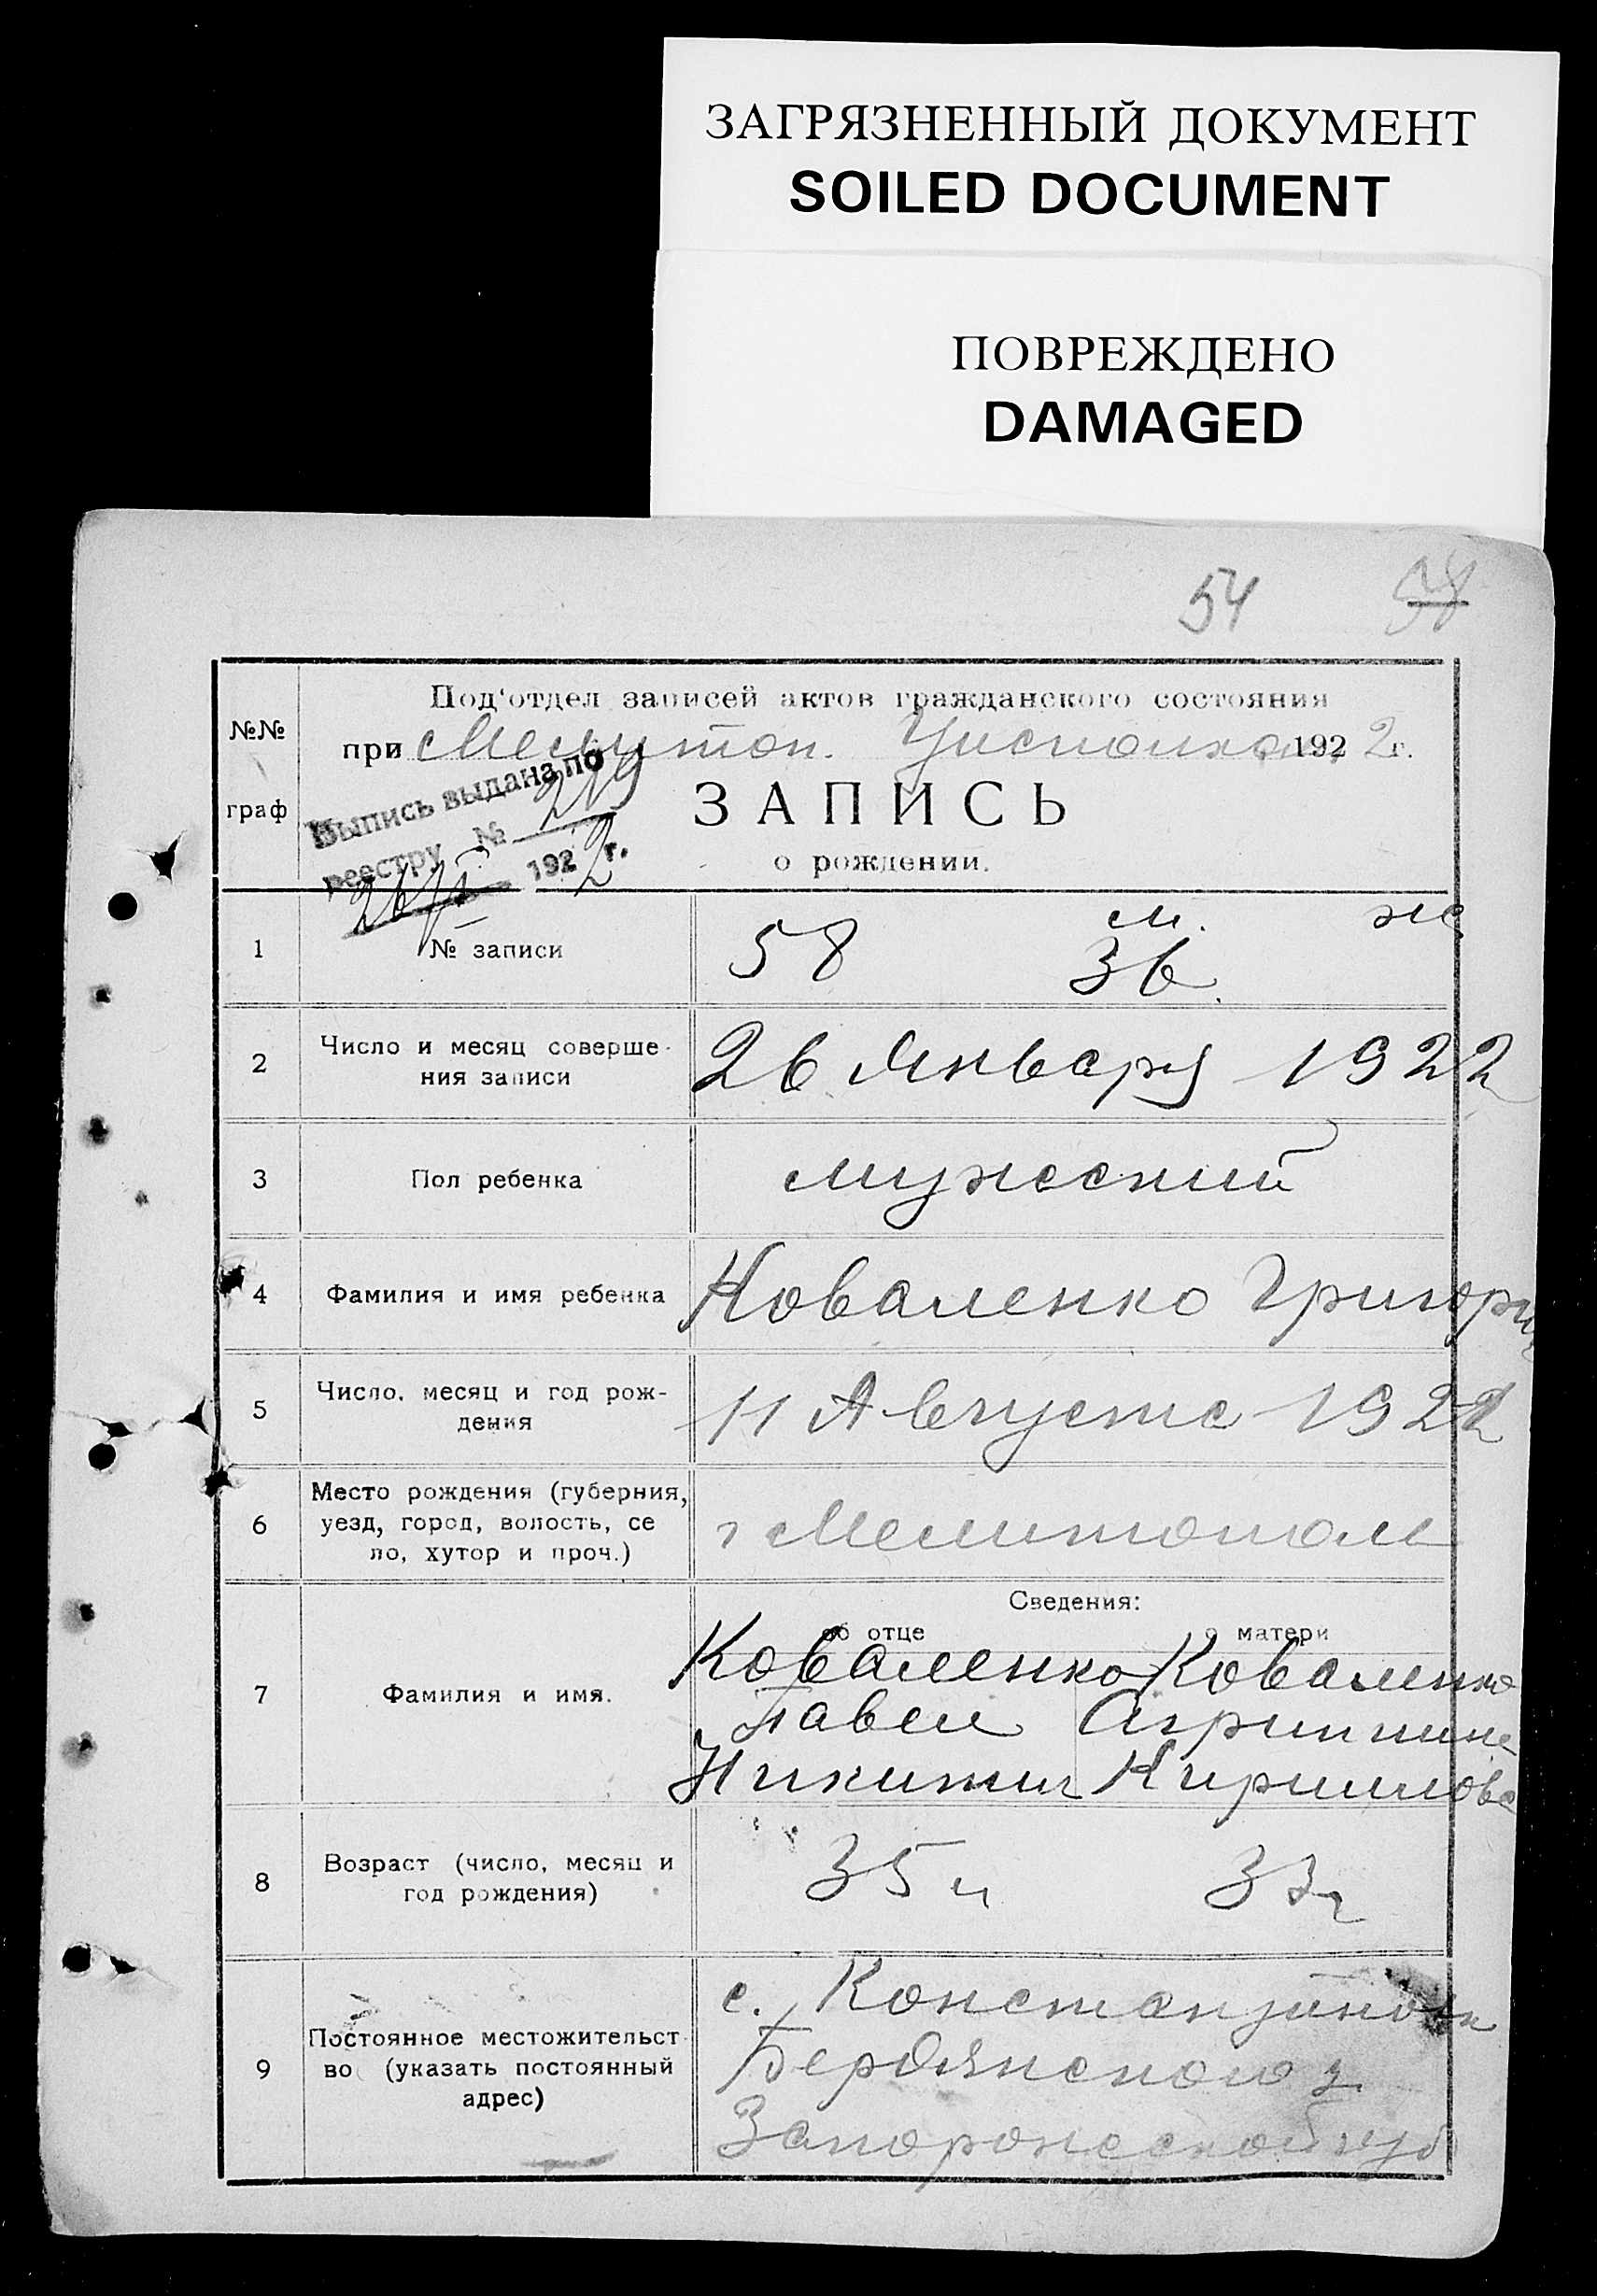 ЗАГРЯЗНЕННЫЙ ДОКУМЕНТ
SOILED DOCUMENT
ПОВРЕЖДЕНО
DAMAGED
54 58
№№
граф
Под'отдел записей актов гражданского состояния
при Мелитоп. 1922 г.
Выпись выдана по
реестру № 219
26/I 1922 г.
ЗАПИСЬ
о рождении.
м. же
1 № записи 58 36
2 Число и месяц соверше-
ния записи 26 Января 1922
3 Пол ребенка мужеский
4 Фамилия и имя ребенка Коваленко Григори
5 Число, месяц и год рож-
дения 11 Августа 192
6 Место рождения (губерния,
уезд, город, волость, се
ло, хутор и проч.) г Мелитополь
Сведения:
об отце о матери
7 Фамилия и имя. Коваленко Коваленко
Павел Агриппина
Никитич Кириллова
8 Возраст (число, месяц и
год рождения) 35 л 33 г
9 Постоянное местожительст-
во (указать постоянный
адрес)
с. Константиновк
Бердянского у.
Запорожеской губ